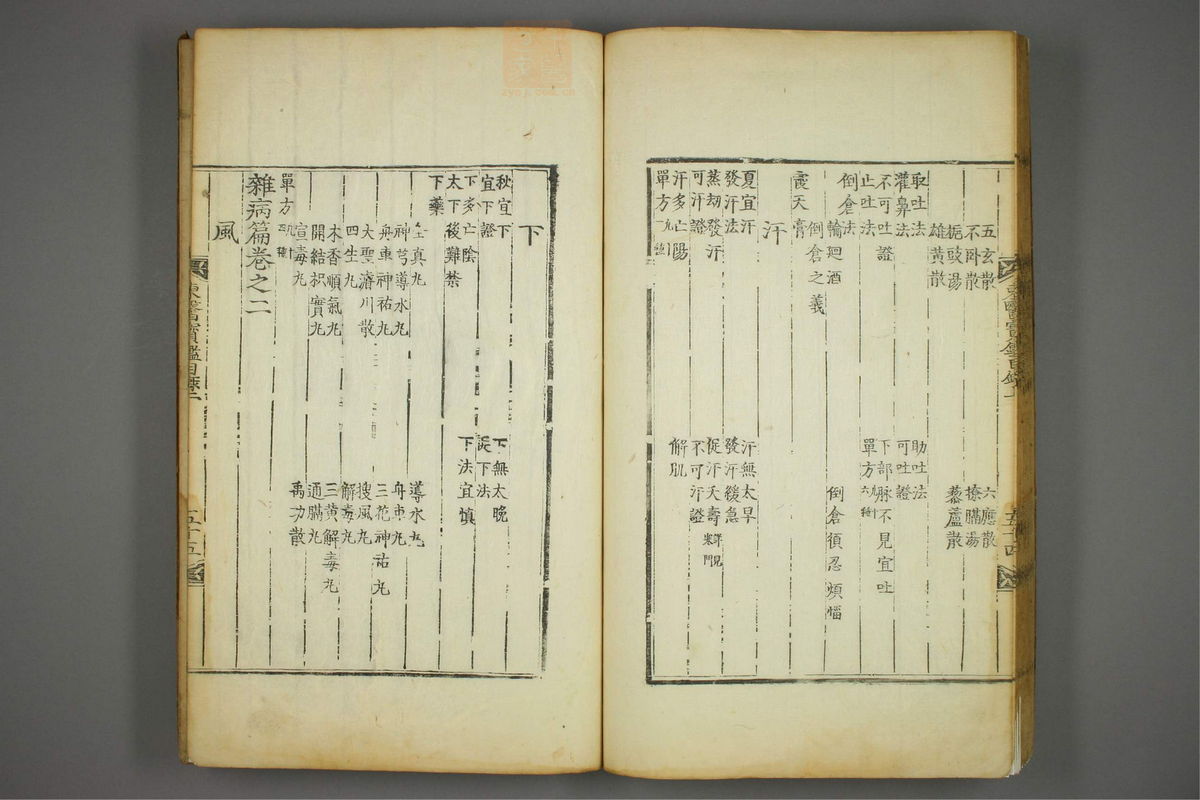 五玄散
六應散
不臥散
撩膈湯
梔豉湯
藜蘆散
雄黃散
取吐法
助吐法
灌鼻法
可吐證
不可吐證
下部脉不見宜吐
止吐法
單方
倒倉法
輪廻酒
倒倉須忍煩惱
倒倉之義
霞天膏
汗
夏宜汗
汗無太早
發汗法
發汗緩急
蒸劫發汗
促汗夭壽
可汗證
不可汗證 詳見寒門
汗多亡陽
解肌
單方
東醫寶鑑目錄
五十四
下
秋宜下
下無太晚
宜下證
促下法
下多亡陰
下法宜慎
太下後難禁
下藥
全真丸
導水丸
神芎導水丸
舟車丸
舟車神祐丸
三花神祐丸
大聖濬川散
搜風丸
四生丸
解毒丸
木香順氣丸
三黃解毒丸
開結枳實丸
通膈丸
宣毒丸
禹功散
單方
雜病篇卷之二
風
東醫寶鑑目錄
五十五
zysj.com.cn